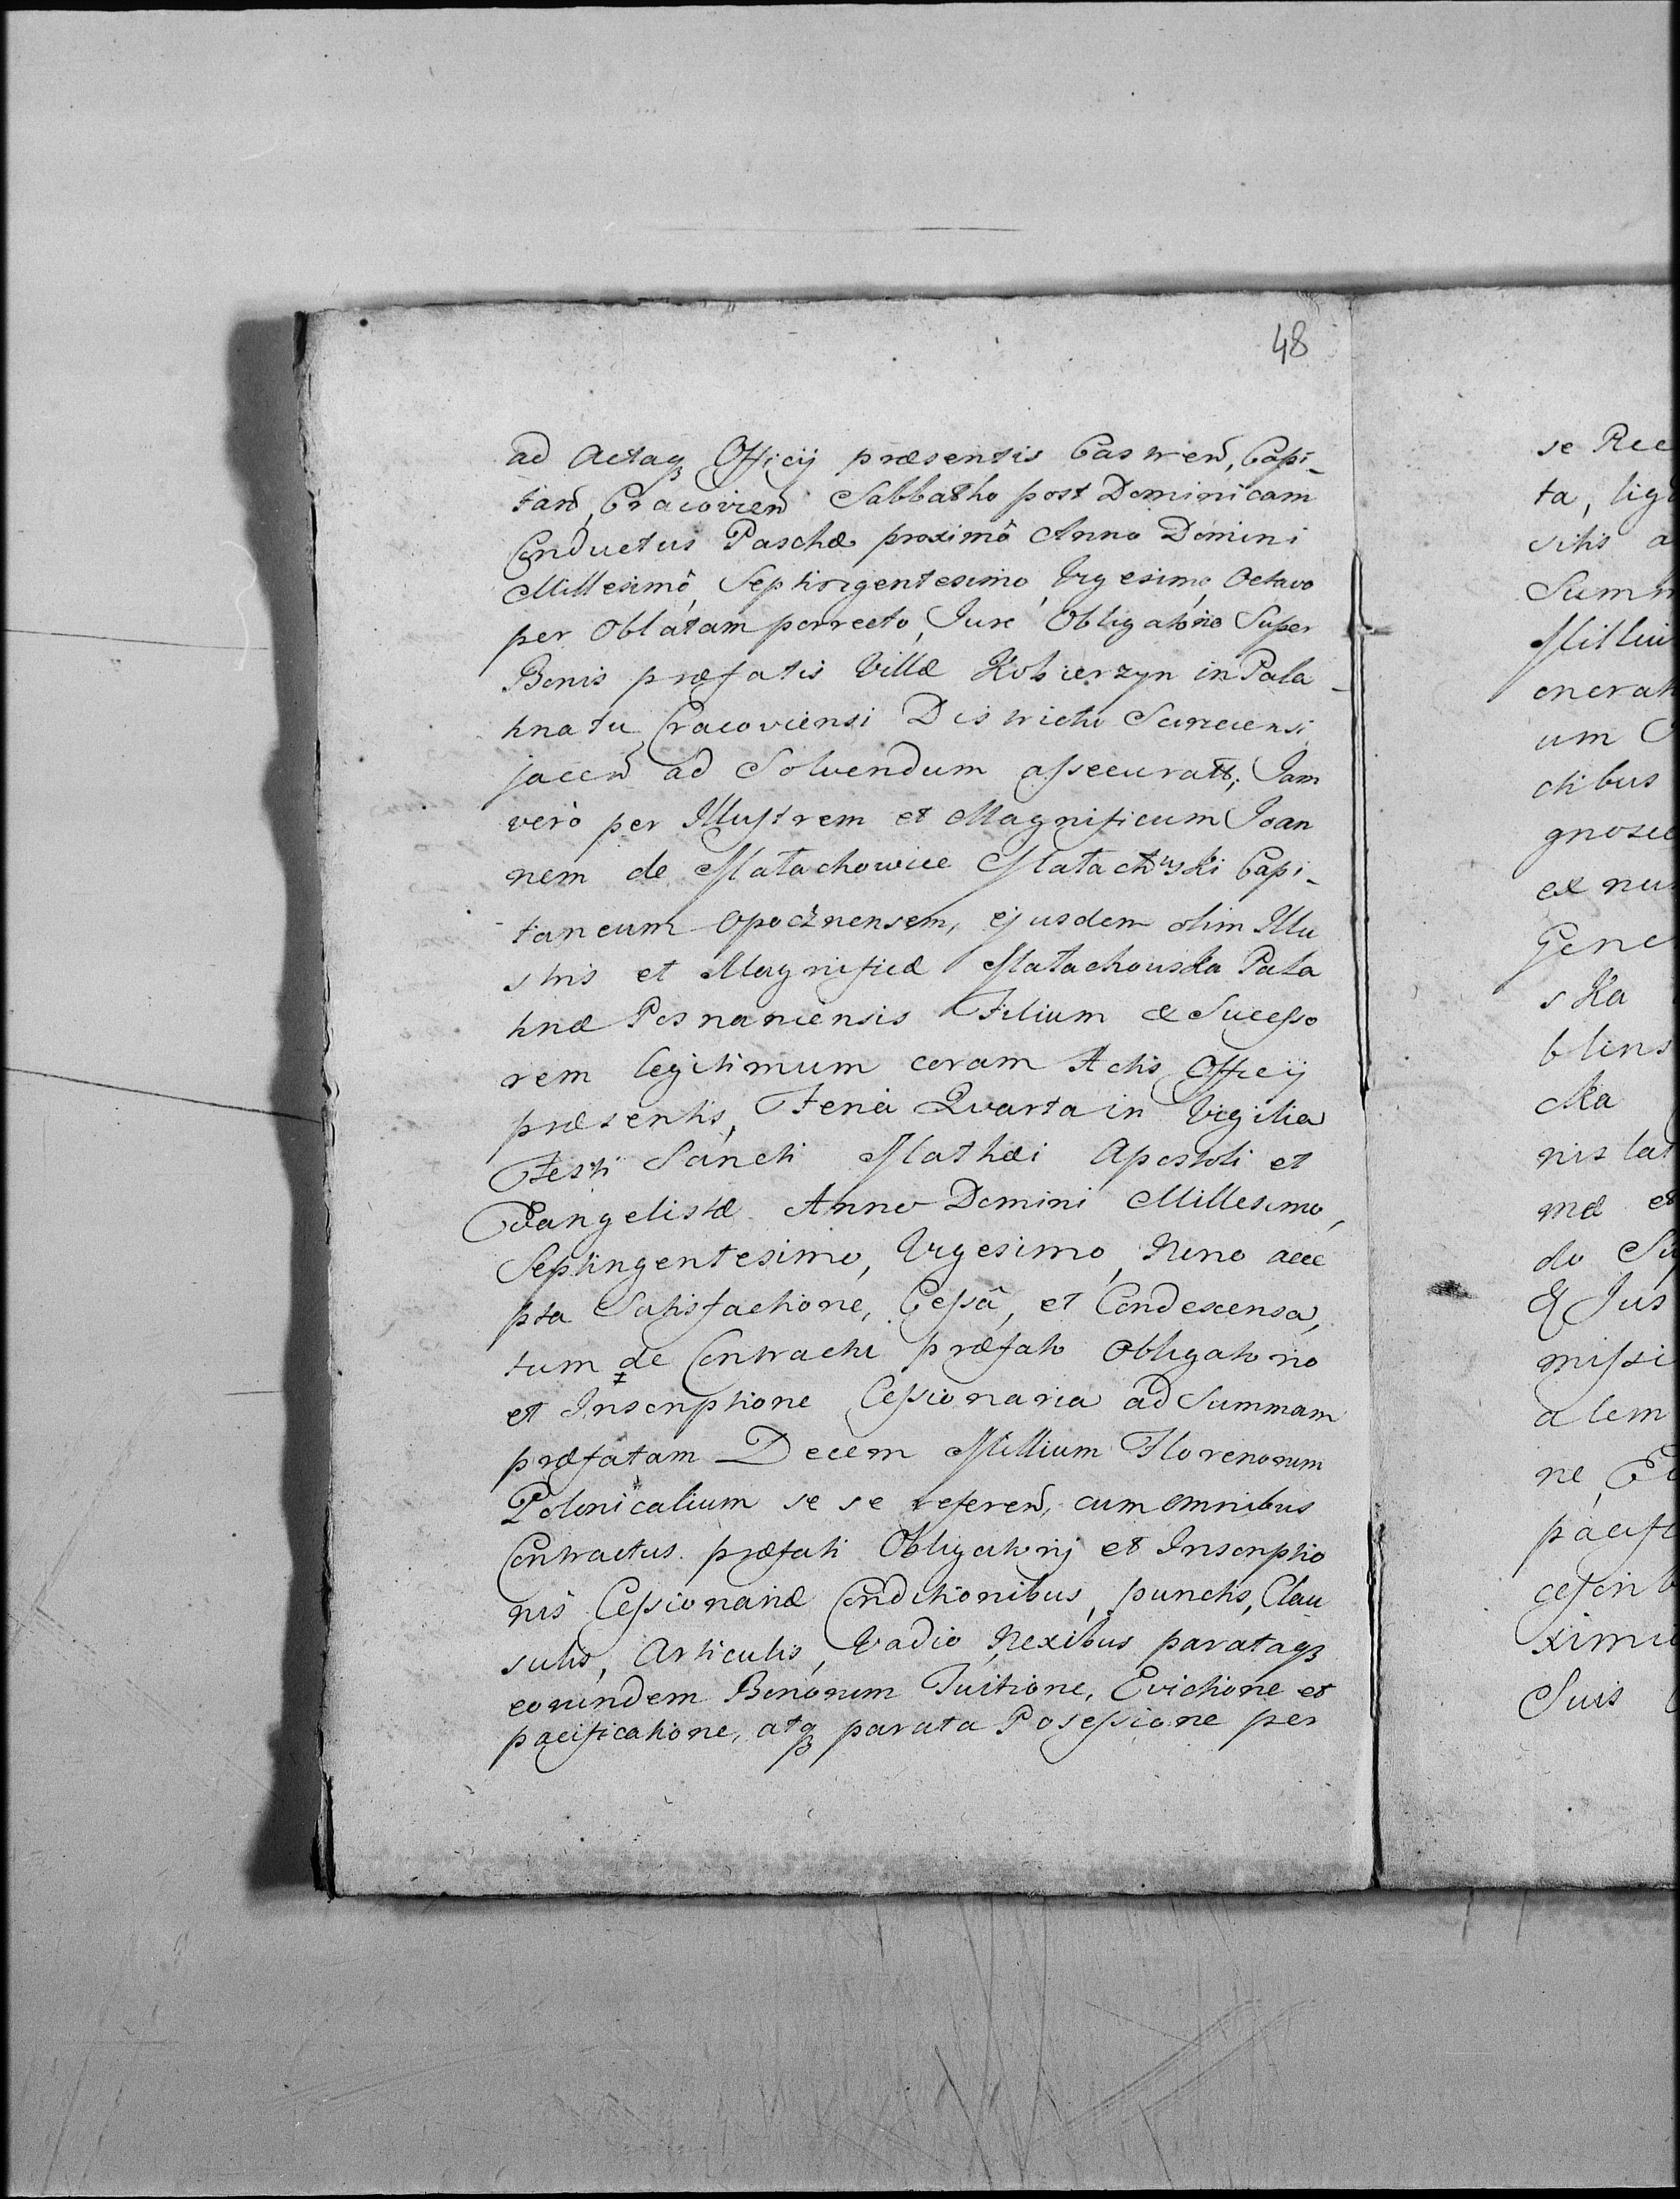 48
ad Actaq Officij præsentis Castreñ, Capi-
taneñ, Cracovieñ Sabbatho post Dominicam
Conductus Paschæ proximô Anno Domini
Millesimô, Septingentesimo, Vigesimo, Octavo
per Oblatam porrecto, Jure Obligatorio Super
Bonis præfatis Villæ Kobierzyn in Pala-
tinatu Cracoviensi Districtu Scireciensi
jaceñ ad Solvendum assecuratt; Jam
verò per Illustrem et Magnificum Joan
nem de Małachowice Małachwski Capi-
taneum Opocznensem, ejusdem olim Illu
stris et Magnificæ Małachouska Pala
tinæ Posnaniensis Filium & Successo
rem legitimum coram Actis Officij
præsentis, Feria Quarta in Vigilia
Festi Sancti Mathæi Apostoli et
Evangelistæ Anno Domini Millesimo,
Septingentesimo, Vigesimo, Nono acce
pta Satisfactione, Cessâ, et Condescensa,
tum de Contractu præfato Obligatorio
et Inscriptione Cessionaria ad Summam
præfatam Decem Millium Florenorum
Polonicalium se se refereñ, cum omnibus
Contractus præfati Obligatorij et Inscriptio
nis Cessionariæ Conditionibus, punctis, Clau
sulis, Articulis, Vadio, Nexibus parataq
eorundem Bonorum Tuitione, Evictione et
pacificatione, atq parata Possessione per
se Rec
ta, lig
sitis a
Summ
Milliu
onerat
um
ctibus
gnosce
ex nu
Gene
ska
blins
cka
nis lat
mæ et
do Su
& Jus
missi
alem
ne, Ev
pacifi
cesin
ximi
Suis